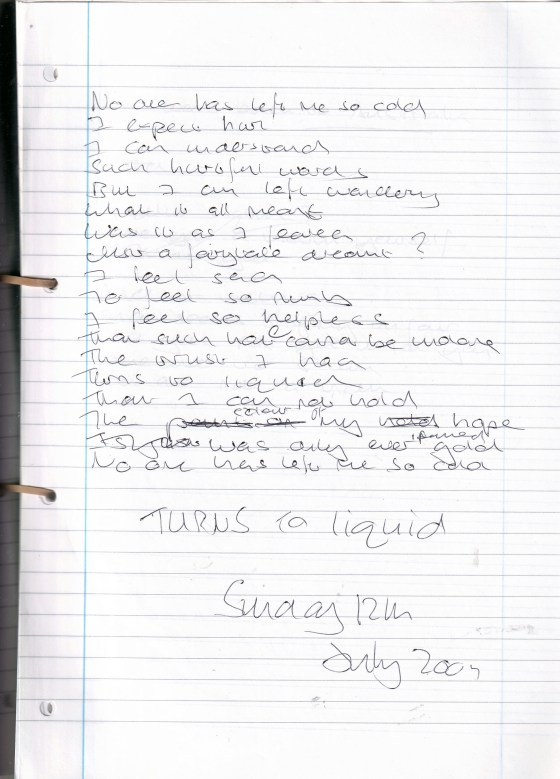 No one has left me so cold
I expect
I can understand
Such words
But I am left wondering
What it all meant
Was it as I feared
Just a fairytale dreamt ?
I feel sad
To feel so numb
I feel so helpless
That such cannot be undone
The trust I had
Turns to liquid
That I can not hold
The colour of my hope
was only ever painted gold
No one has left me so cold
TURNS to liquid
Sunday 12th
July 2009